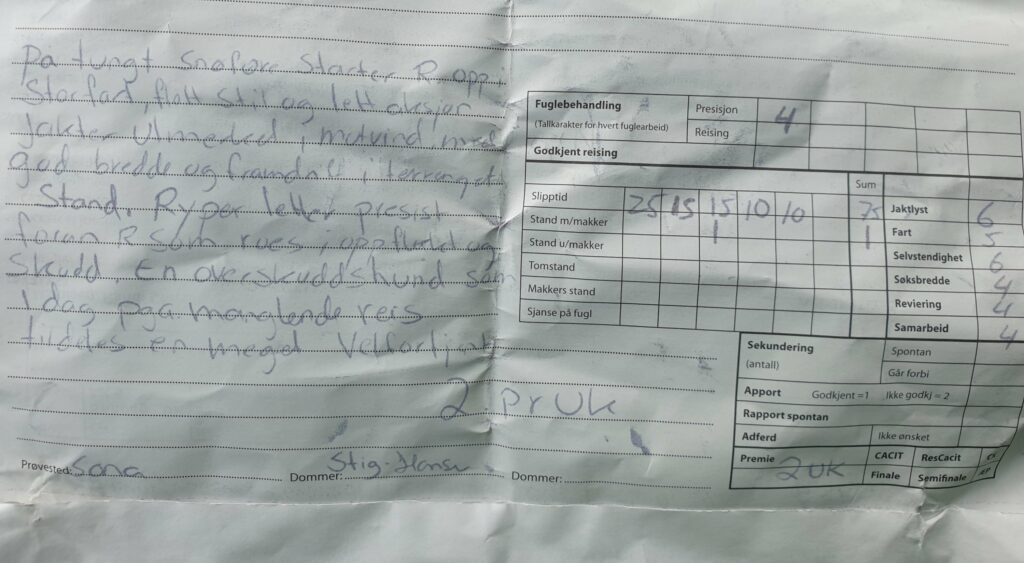 på tungt snøføre starter R opp i
Storfart, flott stil og lett aksjon
Jakter Utmerked i motvind med
god bredde og framdrift i terrenget
Stand, Ryper letter presist
foran R som roes i oppflukt og
Skudd, En overskuddshund som
I dag pga manglende reis
tildeles en meget Velfortjent
2. pr UK
Prøvested: Dommer: Stig. Dommer:
Fuglebehandling
(Tallkarakter for hvert fuglearbeid)
Presisjon 4
Reising
Godkjent reising
Sum
Slipptid 25 15 15 10 10 75
Stand m/makker
Stand u/makker 1 1
Tomstand
Makkers stand
Sjanse på fugl
Jaktlyst 6
Fart 5
Selvstendighet 6
Søksbredde 4
Reviering 4
Samarbeid 4
Sekundering
(antall)
Spontan
Går forbi
Apport Godkjent =1 Ikke godkj = 2
Rapport spontan
Adferd Ikke ønsket
Premie 2 UK CACIT ResCacit CK
Finale Semifinale HP